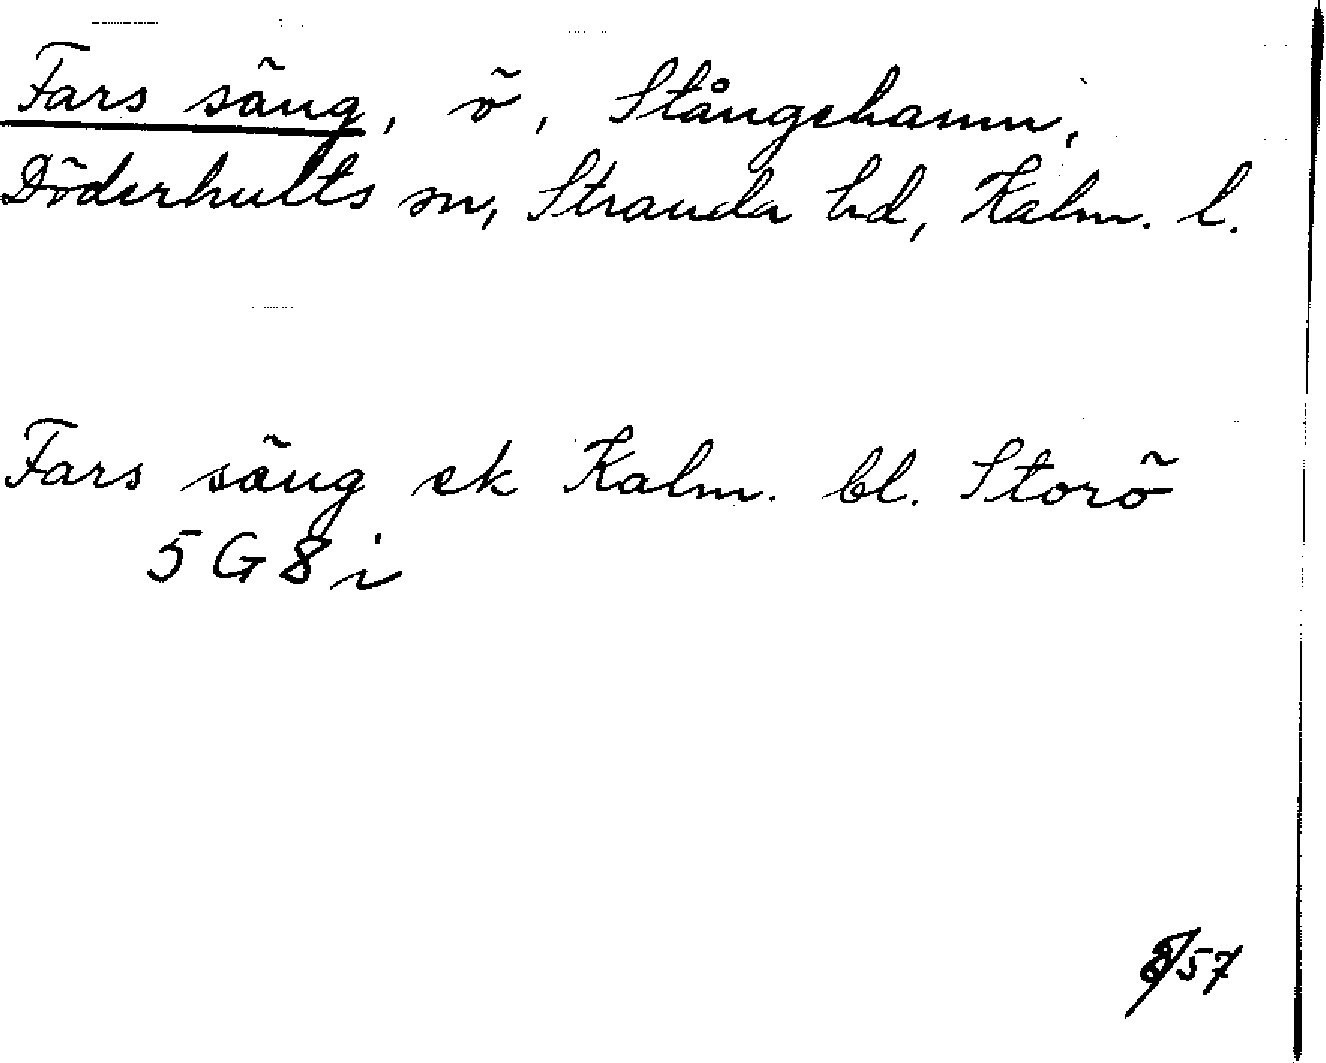 Fars säng, ö, Stångehamn,
Döderhults sn, Stranda hd, Kalm. l.
Fars säng ek Kalm. bl. Storö
5 G 8 i
57